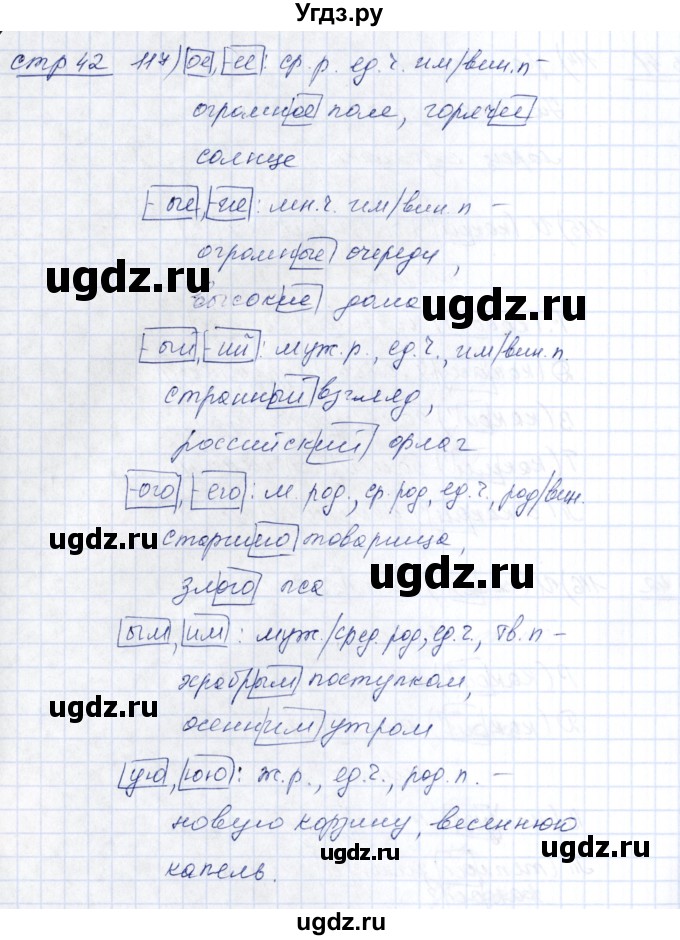 Угдз.ру
стр 42 117) ое, -ее: ср.р. ед.ч. им/вин.п-
огромное поле, горячее
солнце
-ые, -ие: мн.ч. им/вин.п -
огромные очереди,
ugdz.ru
ugdz.ru
высокие дома
-ый, -ий: муж.р., ед.ч., им/вин.п.
странный взгляд,
российский флаг
-ого, -его: м.род., ср.род, ед.ч., род/вин.
старшего товарища,
ugdz.ru
ugdz.ru
злого пса
ым, им: муж./сред.род, ед.ч., тв.п -
храбрым поступком,
ugdz.ru
осенним утром
ую, юю: ж.р., ед.ч., род.п. -
новую корзину, весеннюю
капель.
ugdz.ru
ugdz.ru
ugdz.ru